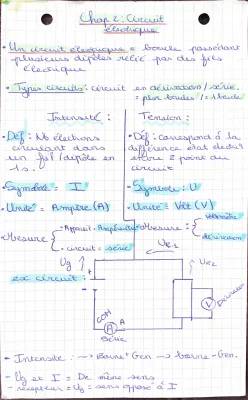 Chap 2: Circuit
électrique
• Un circuit électrique = boucle possédant
plusieurs dipôles relié par des fils
électrique
• Types circuits: circuit en dérivation / série.
= plsr boucles / = 1 boucle
Intensité:
• Déf: Nb électrons
circulant dans
un fil / dipôle en
1s.
• Symbole = I
• Unité = Ampère (A)
• Mesure
- Appareil = Ampèremètre
- circuit = série
Tension:
• Déf: Correspond à la
différence état élect
entre 2 point du
circuit
• Symbole: U
• Unité = Volt (V)
• Mesure =
voltmètre
dérivation
ex circuit:
Ug
UR1
UR2
COM
A
A
V
Série
Dérivation
- Intensité: → Borne + Gen → borne - Gen.
- Ug et I = De même sens
- récepteur = UR = sens opposé à I